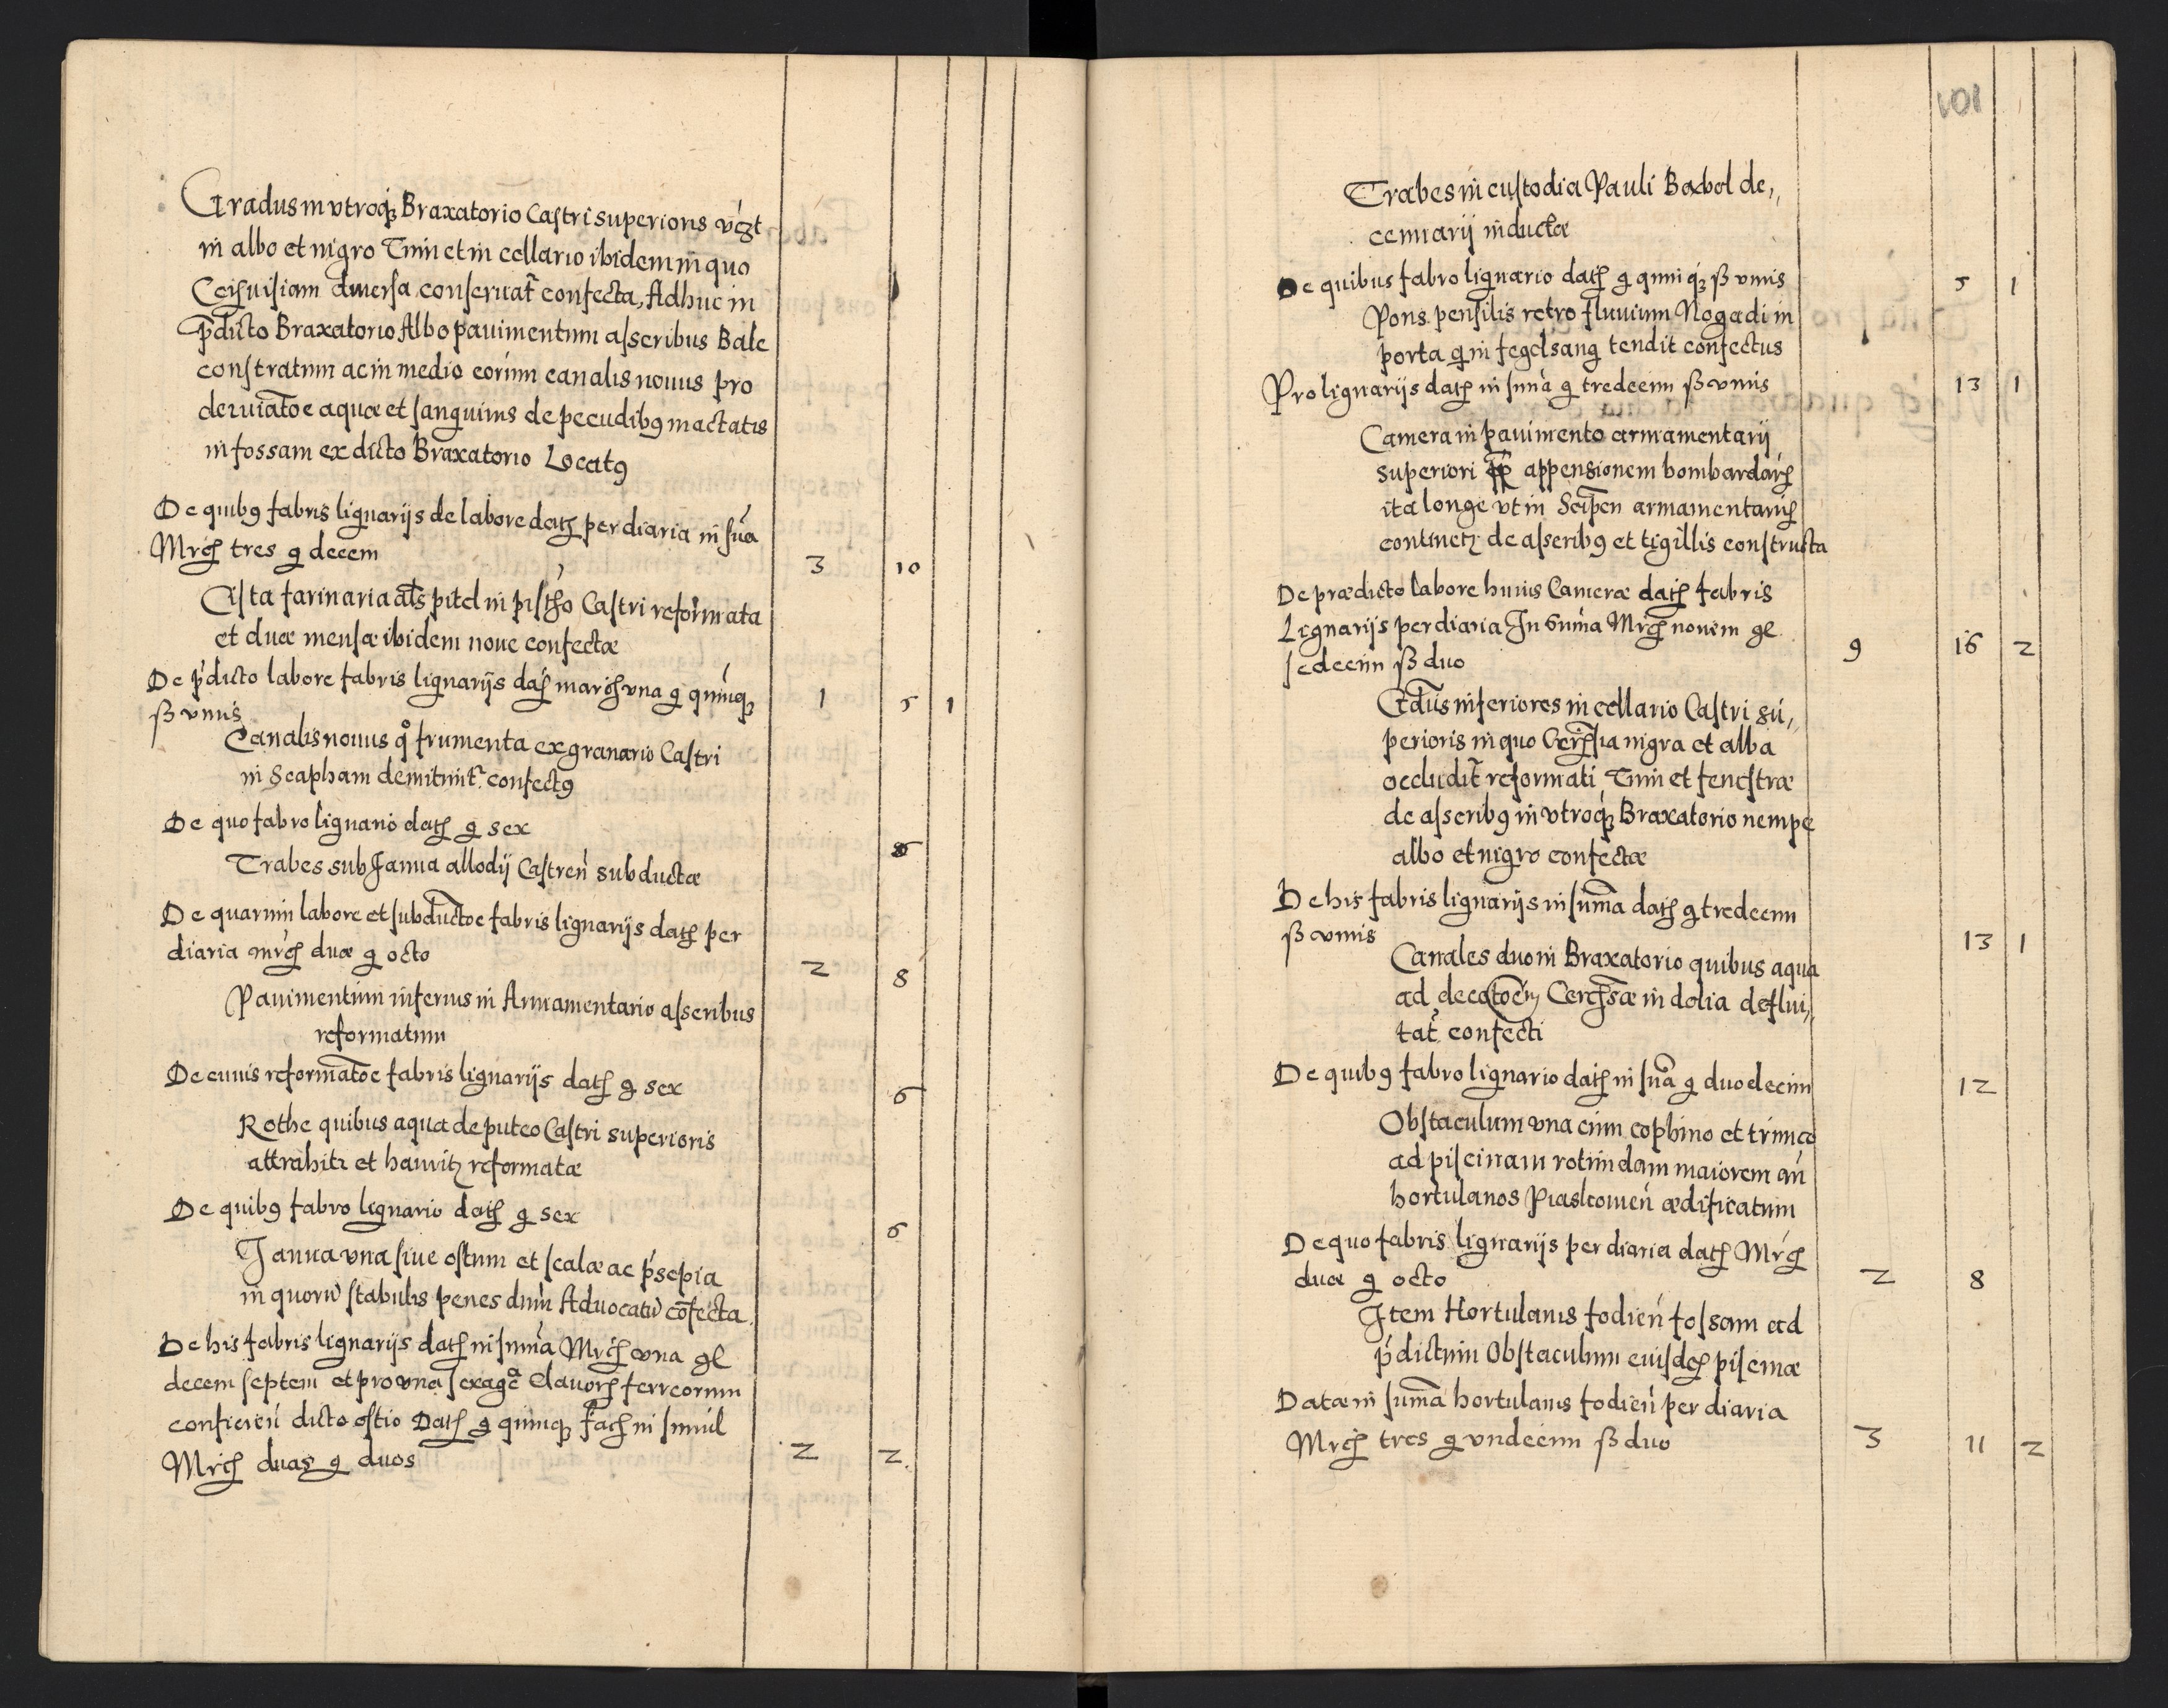 Gradus in vtroq₃ Braxatorio Castri superioris
in albo et nigro Tum et in cellario ibidem in quo
diuersa conseruat̃ confecta, Adhuc in
p̃dicto Braxatorio Albo pauimentum asseribus Bale
constratum ac in medio eorum canalis nouus pro
deriuatõe aquæ et sanguinis de pecudibꝰ mactatis
in fossam ex dicto Braxatorio Locatꝰ
De quibꝰ fabris lignarijs de labore datꝭ per diaria in sũa
Mrcꝭ tres g decem 3 10
Cista farinaria als pitel in Castri reformata
et duæ mensæ ibidem noue confectæ
De p̃dicto labore fabris lignarijs datꝭ marcꝭ vna g quinq₃ 1 5 1
ß vnus
Canalis nouus q° frumenta ex granario Castri
in Scapham demitunt̃ confectꝰ
De quo fabro lignario datꝭ g sex 6
Trabes sub Janua allodij Castren̄ subductæ
De quarum labore et subductõe fabris lignarijs datꝭ per
diaria mrcꝭ duæ g octo 2 8
Pauimentum inferius in Armamentario asseribus
reformatum
De cuius reformatõe fabris lignarijs datꝭ g sex 6
Rothe quibus aqua de puteo Castri superioris
attrahitr et hauritꝛ reformatæ
De quibꝰ fabro lignario datꝭ g sex 6
Janua vna siue ostium et scalæ ac p̃sepia
in quorū stabulis penes dnm̄ Aduocatū cõfecta
De his fabris lignarijs datꝭ in summa Mrcꝭ vna gl
decem septem et pro vna sexagᵃ clauorꝭ ferreorum
conficien̄ dicto ostio Datꝭ g quinq₃ facꝭ in simul
Mrcꝭ duas g duos 2 2
101
Trabes in custodia Pauli Boxbol de,,
cennarij inductæ
De quibus fabro lignario datꝭ g quinq₃ ß vnus 5 1
Pons pensilis retro fluuium Nogadi in
porta q̃ in fegelsang tendit confectus
Pro lignarijs datꝭ in suma g tredecim ß vnus 13 1
Camera in pauimento armamentarij
superiori appensionem bombardarꝭ
ita longe vt in armamentariũ
continetꝛ de asseribꝰ et tigillis constructa
De prædicto labore huius Cameræ datꝭ fabris
Lignarijs per diaria In Suma Mrcꝭ nouem gl 9 16 2
sedecim ß duo
Gradus inferiores in cellario Castri su,,
perioris in quo Cereuisia nigra et alba
occludit̃ reformati, Tum et fenestræ
de asseribꝰ in vtroq₃ Braxatorio nempe
albo et nigro confectæ
De his fabris lignarijs in summa datꝭ g tredecim
ß vnus 13 1
Canales duo in Braxatorio quibus aqua
ad decoctõem Cereuisiæ in dolia deflui,,
tat̃ confecti
De quibꝰ fabro lignario datꝭ in sũa g duodecim 12
Obstaculum vna cum cophino et trunco
ad piscinam rotundam maiorem an̄
hortulanos Piaskomen̄ ædificatum
De quo fabris lignarijs per diaria datꝭ Mrcꝭ
duæ g octo 2 8
Item Hortulanis fodien̄ fossam ad
p̃dictum Obstaculum eiusdeꝭ piscinæ
Datæ in summa hortulanis fodien̄ per diaria
Mrcꝭ tres g vndecim ß duo 3 11 2